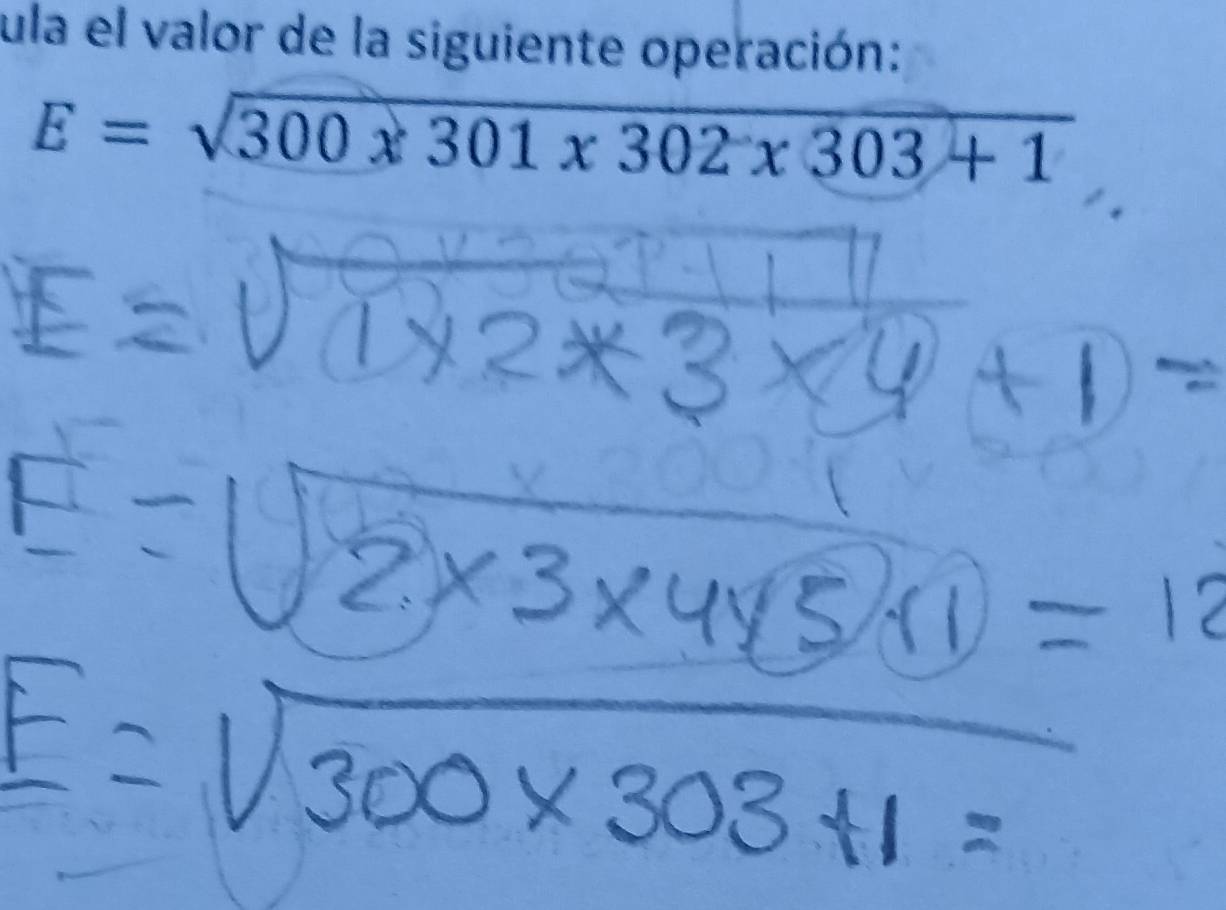 ula el valor de la siguiente operación:
E = √300 x 301 x 302 x 303 + 1
E = √1 x 2 * 3 x 4 + 1 =
E = √2 x 3 x 4 x 5 + 1 = 12
E = √300 x 303 + 1 =